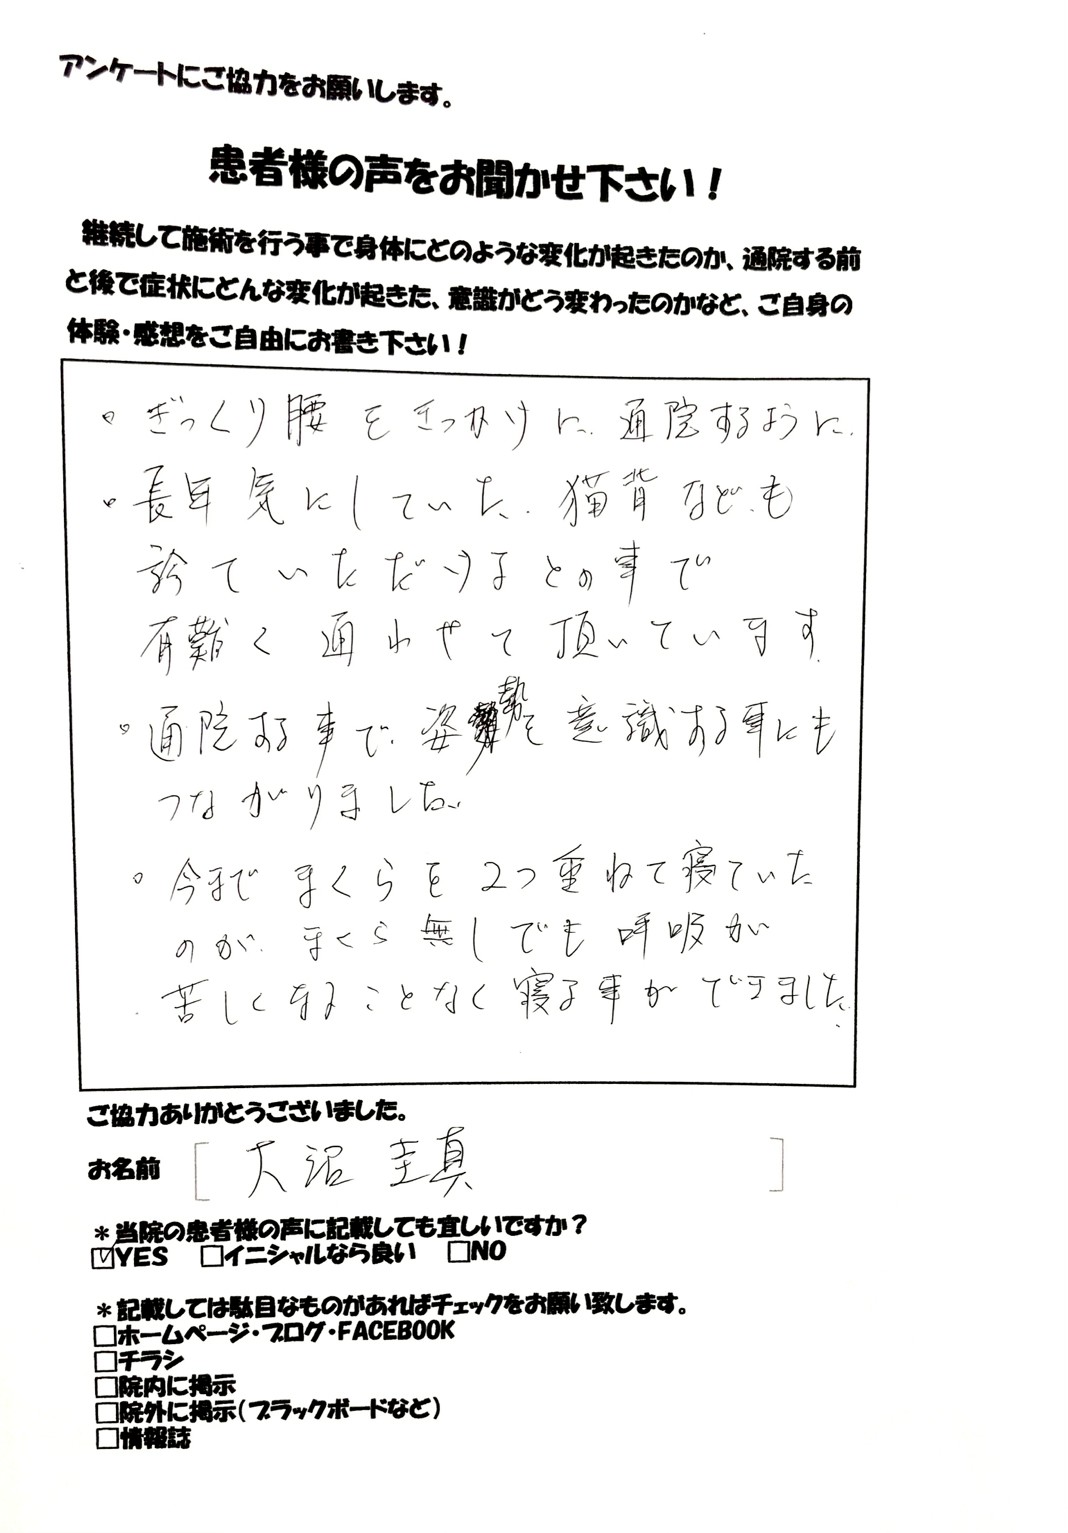 アンケートにご協力をお願いします。
患者様の声をお聞かせ下さい！
継続して施術を行う事で身体にどのような変化が起きたのか、通院する前
と後で症状にどんな変化が起きた、意識がどう変わったのかなど、ご自身の
体験・感想をご自由にお書き下さい！
。ぎっくり腰をきっかけに、通院するように。
。長年気にしていた、猫背なども
診ていただけるとの事で
有難く通わせて頂いています。
。通院する事で、姿勢を意識する事にも
つながりました。
。今までまくらを2つ重ねて寝ていた
のが、まくら無しでも呼吸が
苦しくなることなく寝る事ができました。
ご協力ありがとうございました。
お名前 [大沼 圭真]
＊当院の患者様の声に記載しても宜しいですか？
☑YES □イニシャルなら良い □NO
＊記載しては駄目なものがあればチェックをお願い致します。
□ホームページ・ブログ・FACEBOOK
□チラシ
□院内に掲示
□院外に掲示（ブラックボードなど）
□情報誌